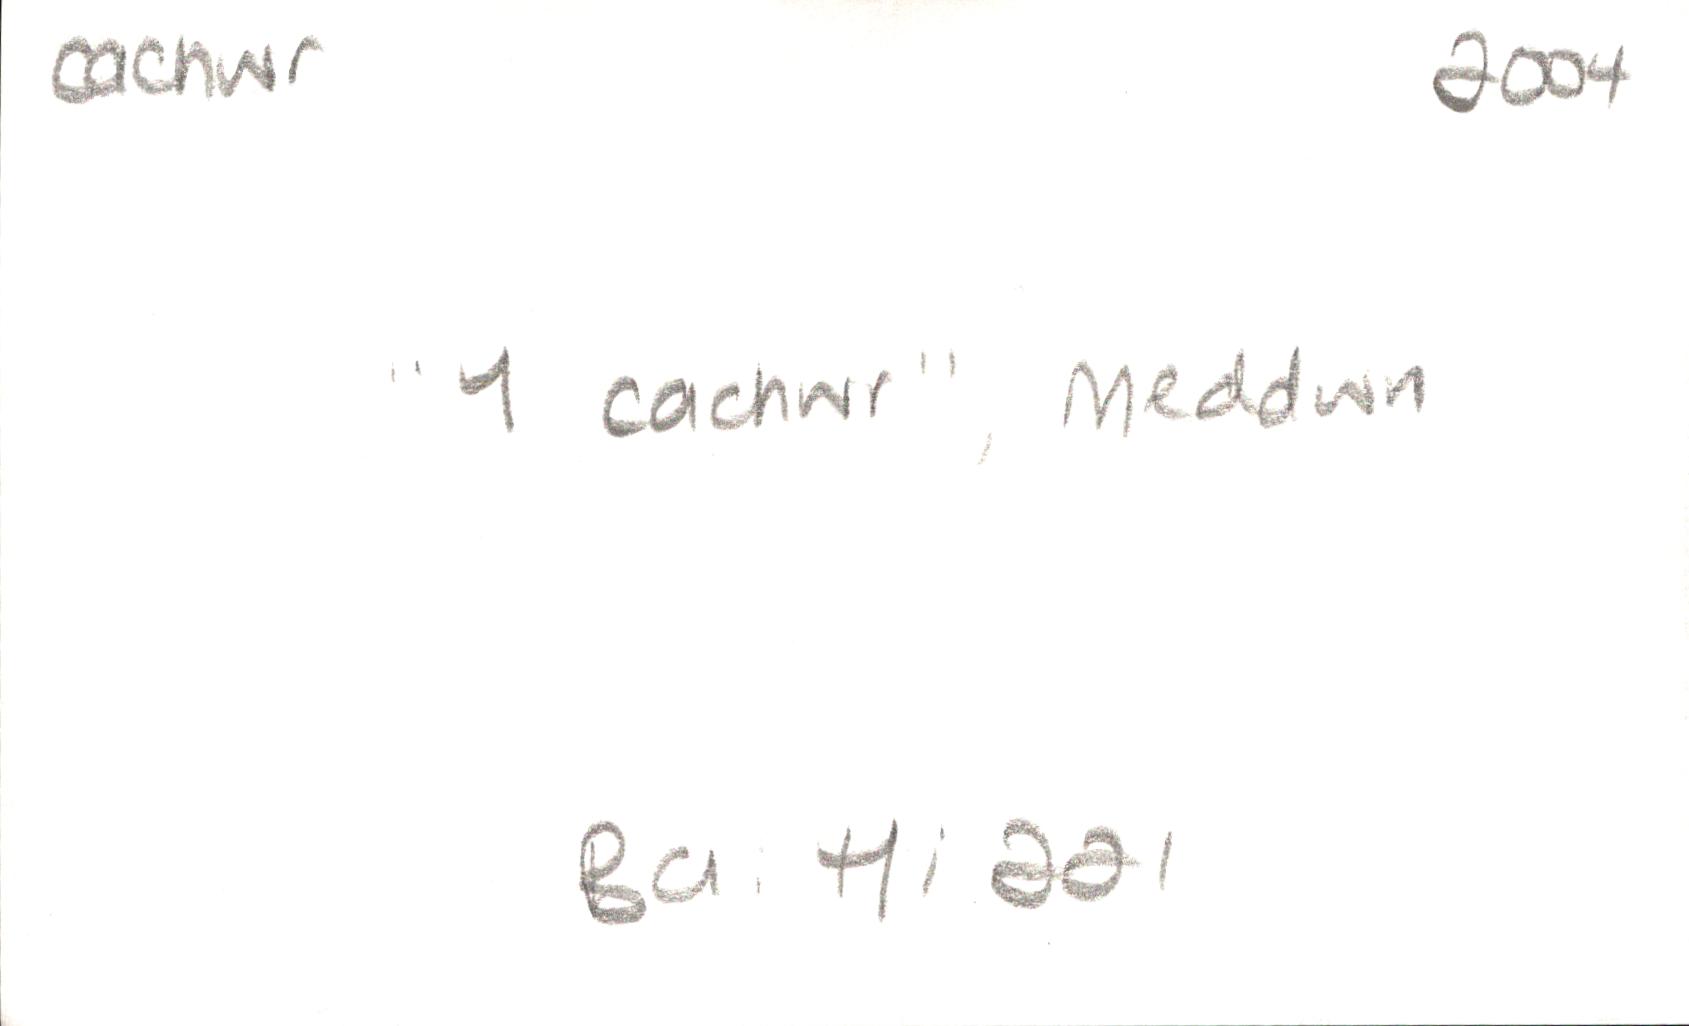 cachwr 2004
"Y cachwr", Meddwn
Ba: Hi 221